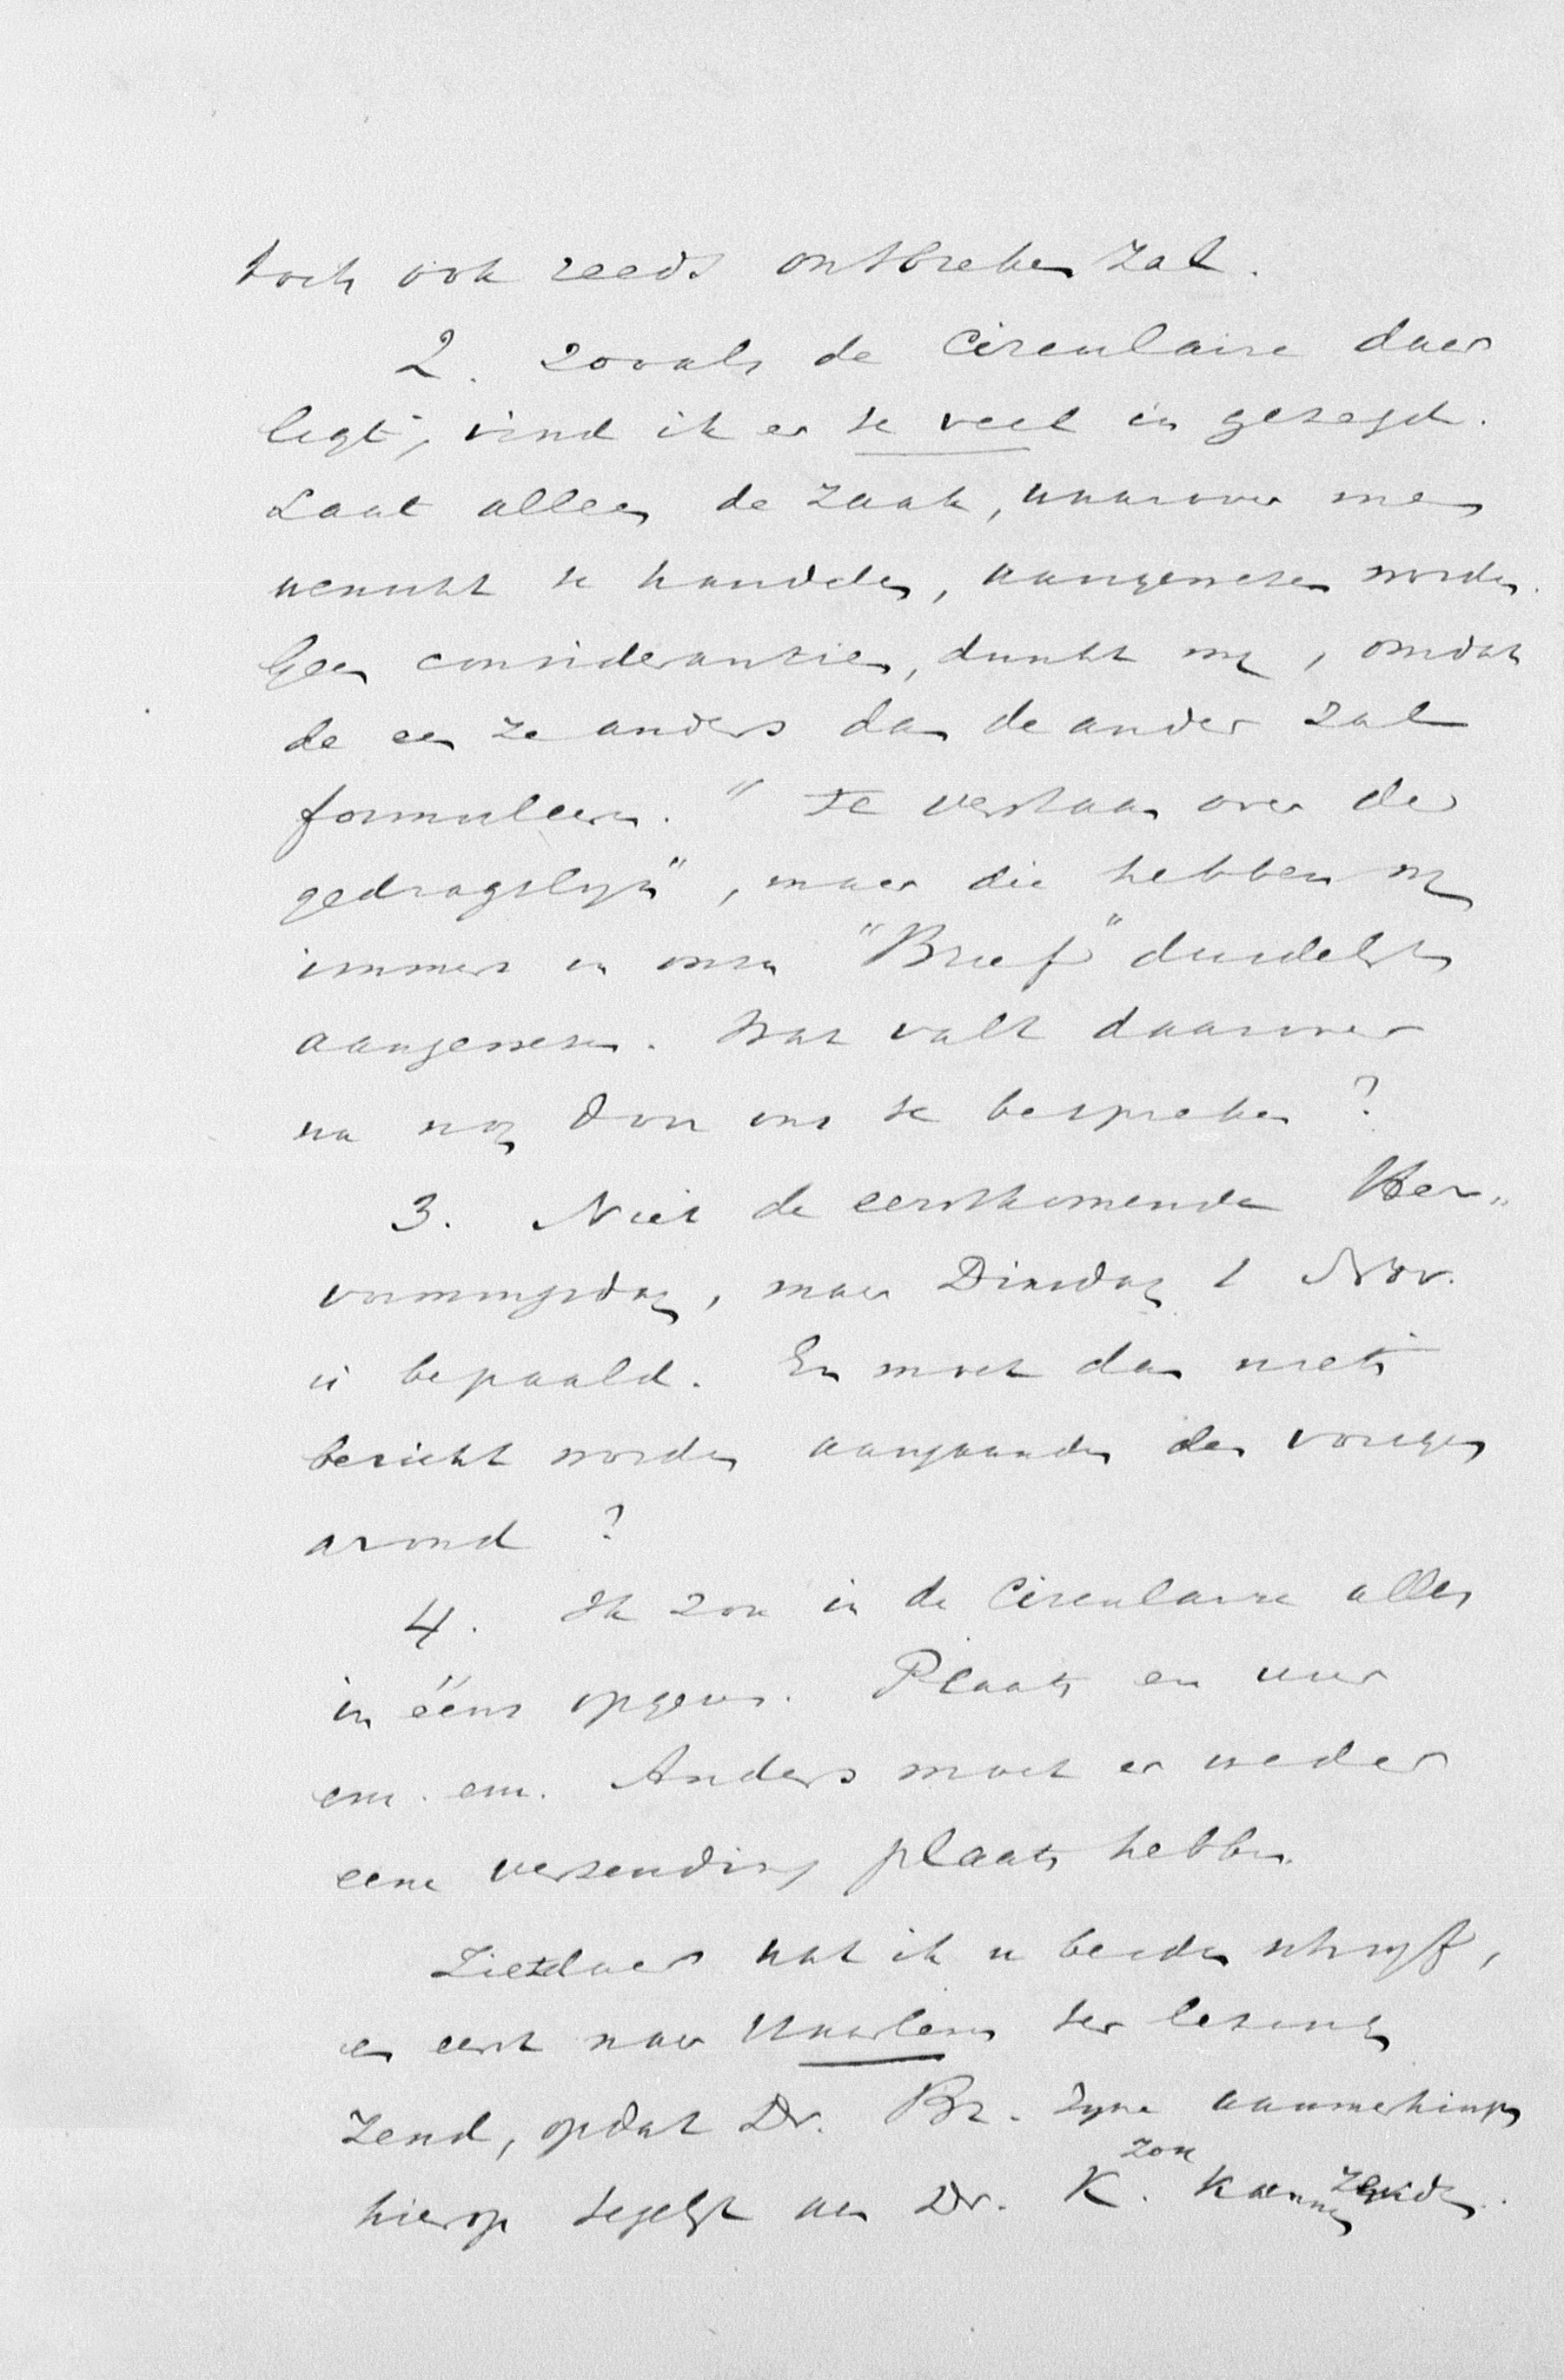 toch ook reeds ontbreken zal.
2. Zooals de Circulaire daar
ligt, vind ik er te veel in gezegd.
Laat alleen de zaak, waarover men
wenscht te handelen, aangewezen worden.
Geen considerantien, dunkt mij, omdat
de een ze anders dan de ander zal
formuleeren. "Te verstaan over de
gedragslijn", maar die hebben wij
immers in onzen "Brief" duidelijk
aangewezen. Wat valt daarover
nu nog door ons te bespreken?
3. Niet de eerstkomende Her-
vormingsdag, maar Dinsdag 1 Nov.
is bepaald. En moet dan niets
bericht worden aangaande den vorigen
avond?
4. Ik zou in de Circulaire alles
in ééns opgeven. Plaats en uur
enz. enz. Anders moet er weder
eene verzending plaats hebben.
Ziedaar wat ik u beiden schrijf,
en eerst naar Haarlem ter lezing
zend, opdat Dr. Br. zijne aanmerkingen
hierop tegelijk aan Dr. K. zou kunnen zenden.